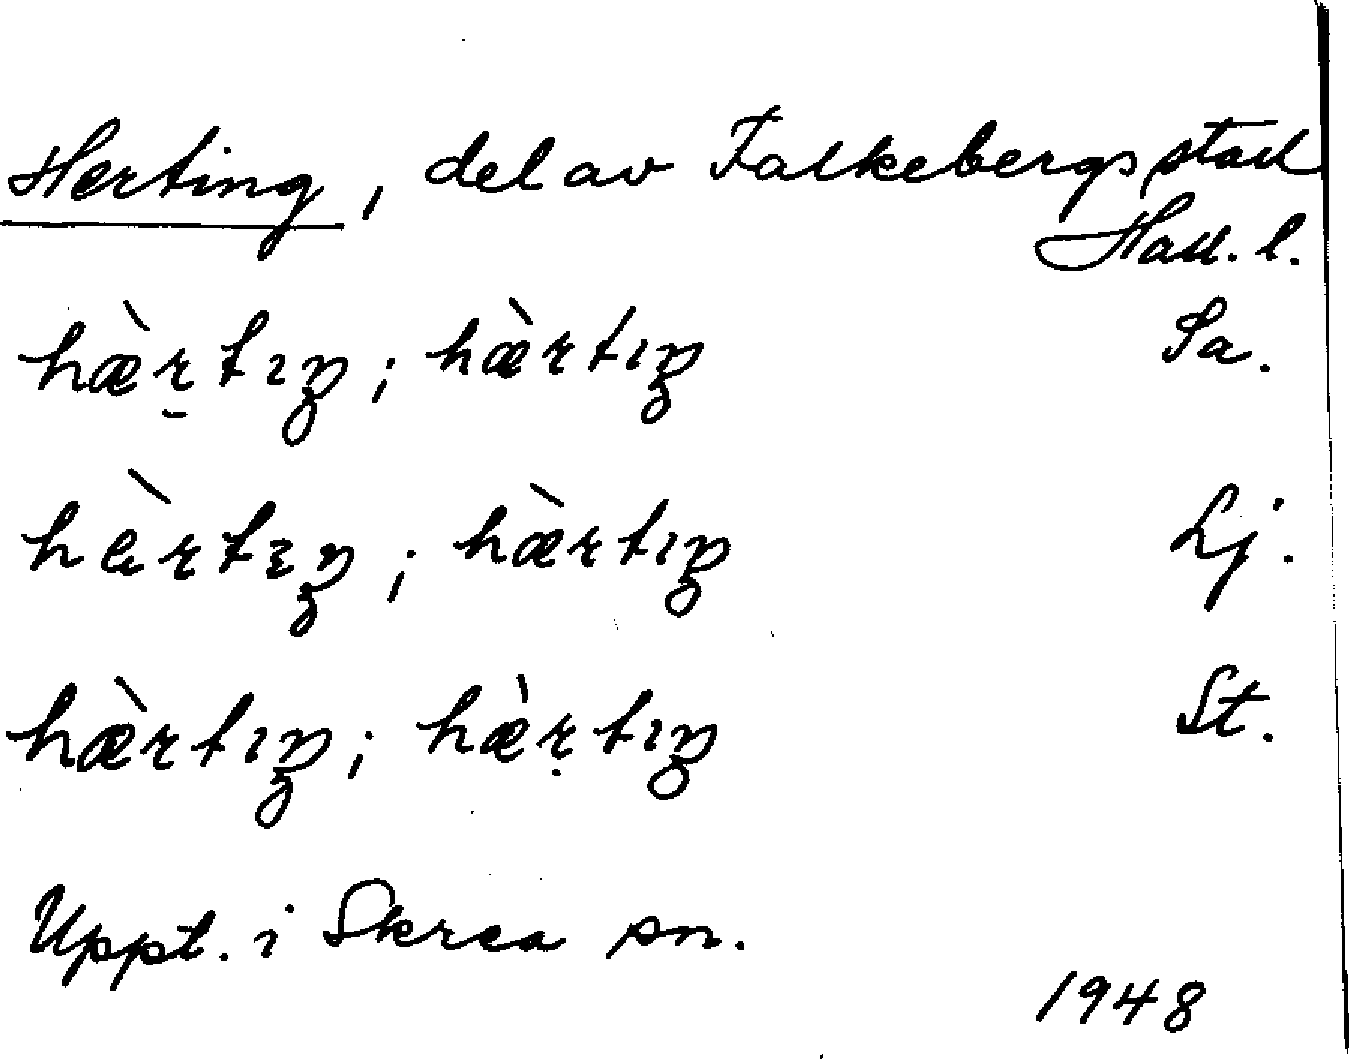 Herting, del av Falkebergs stad
Hall. l.
hæ̀r̠tıŋ; hæ̀rtıŋ Sa.
hæ̀rtıŋ; hæ̀rtıŋ Lj.
hæ̀rtıŋ; hæ̀ṛtıŋ St.
Uppt. i Skrea sn.
1948